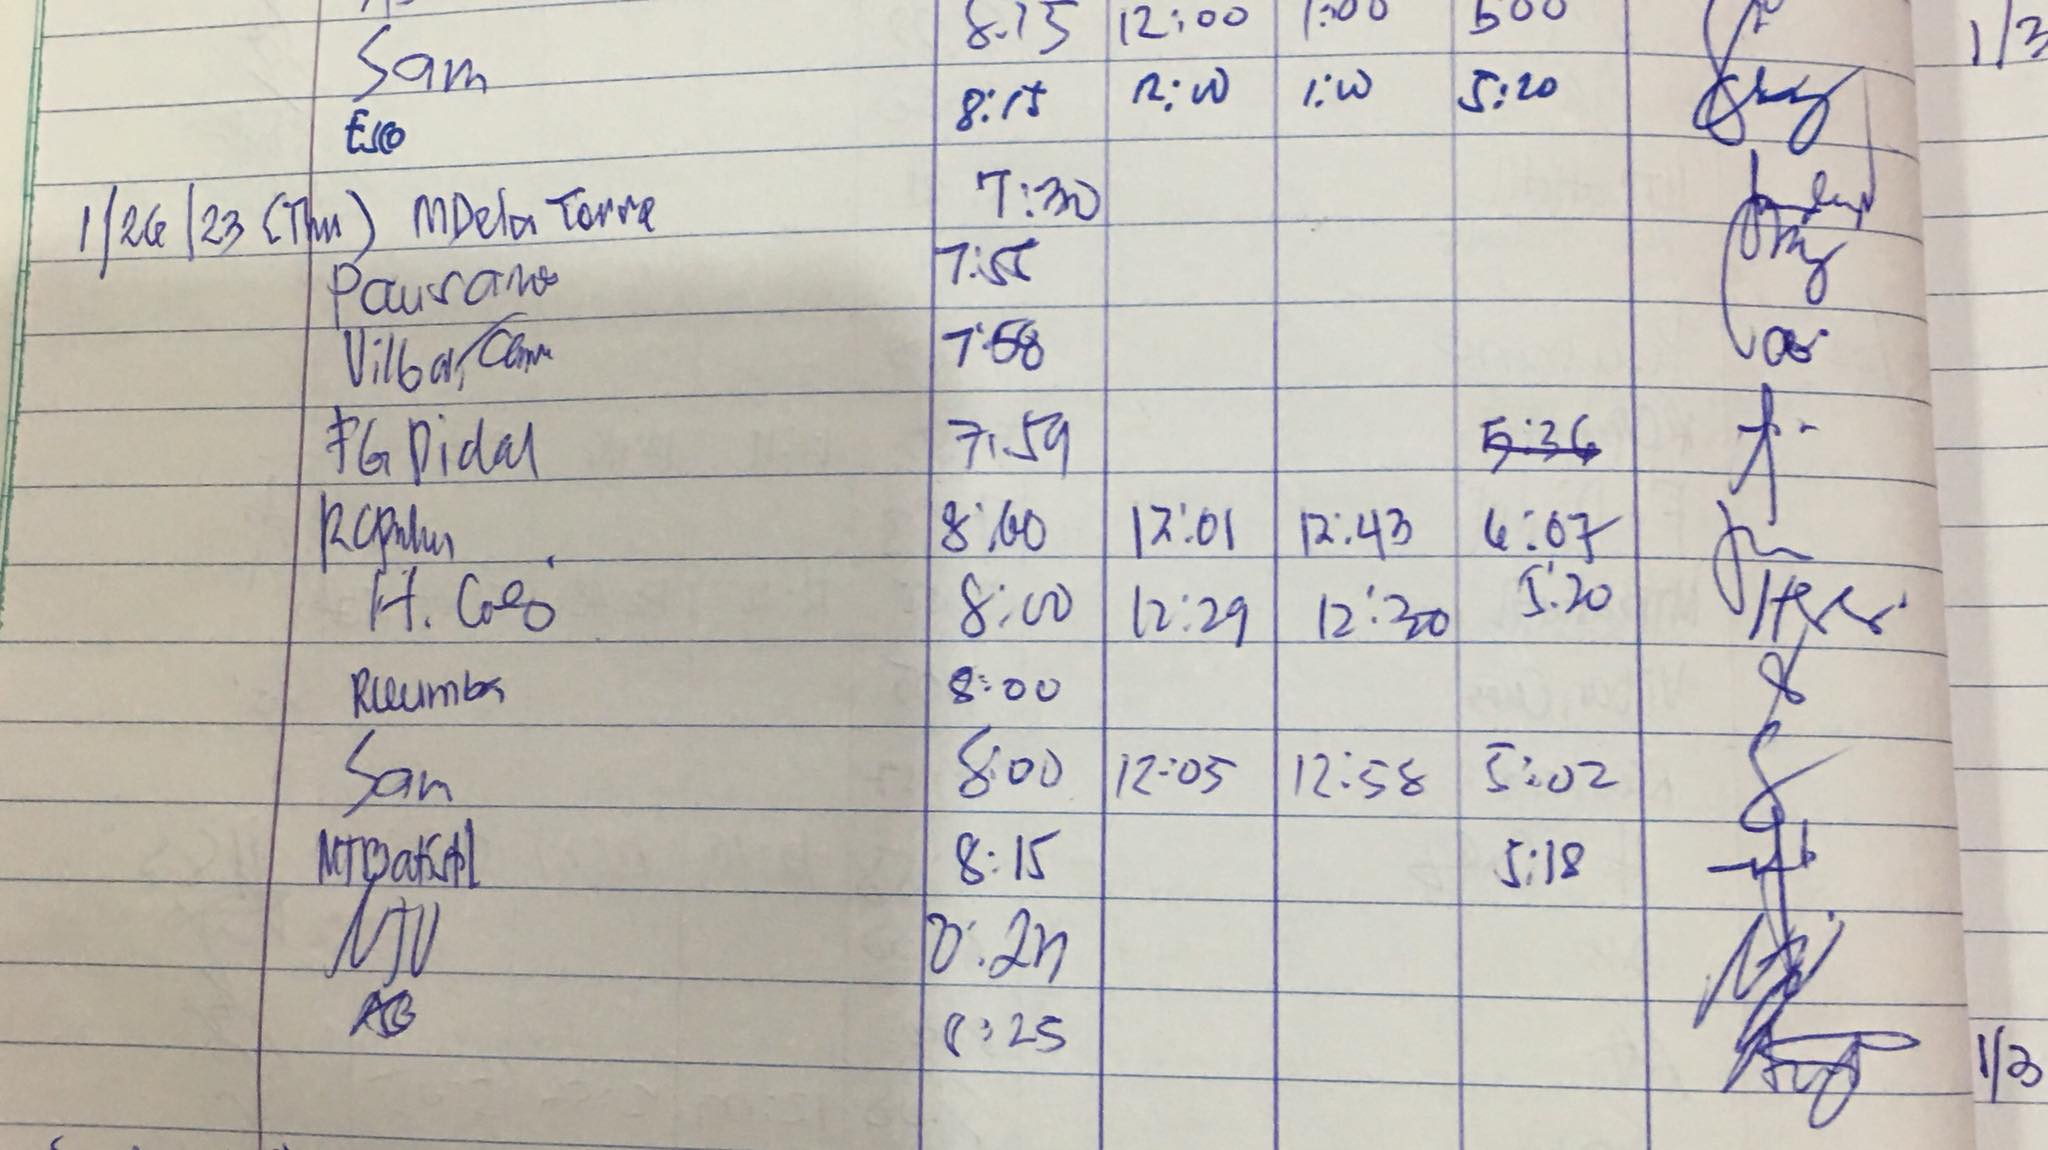 Sam 8:15 12:00 1:00 500
EsO 8:15 12:10 1:10 5:20
1/26/23 (Thu) MDela Torre 7:30
Pausano 7:55
Vilbar, 7:58
FG Pidal 7:59 5:36
8:00 12:01 12:43 6:07
H. Coo 8:00 12:29 12:30 5:20
8:00
Sam 8:00 12:05 12:58 5:02
MTBatistil 8:15 5:18
NJV
AB 8:25